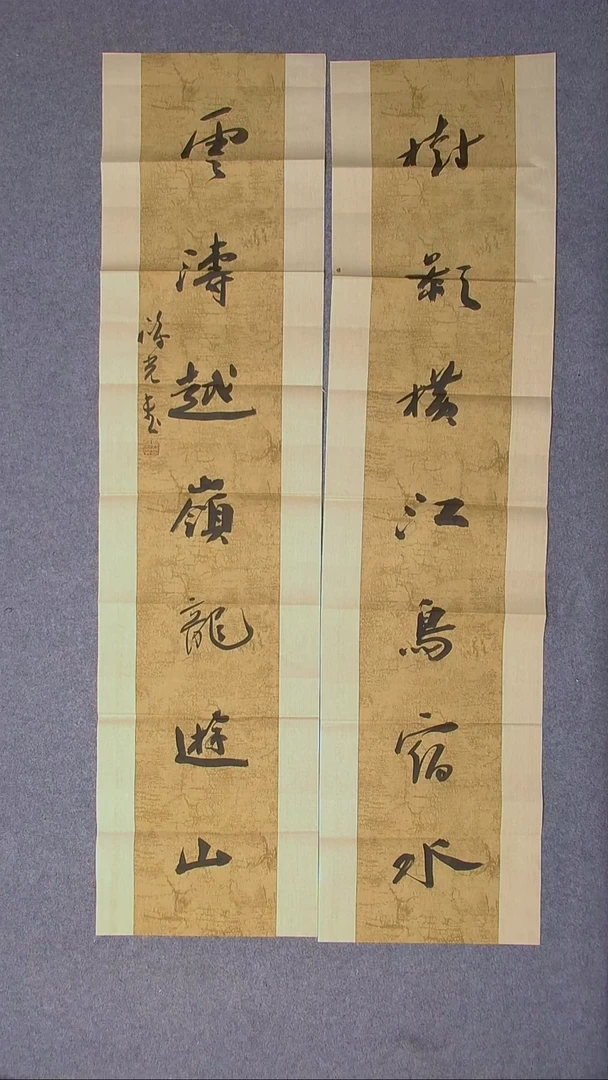 樹影橫江鳥宿水
雲濤越嶺龍遊山